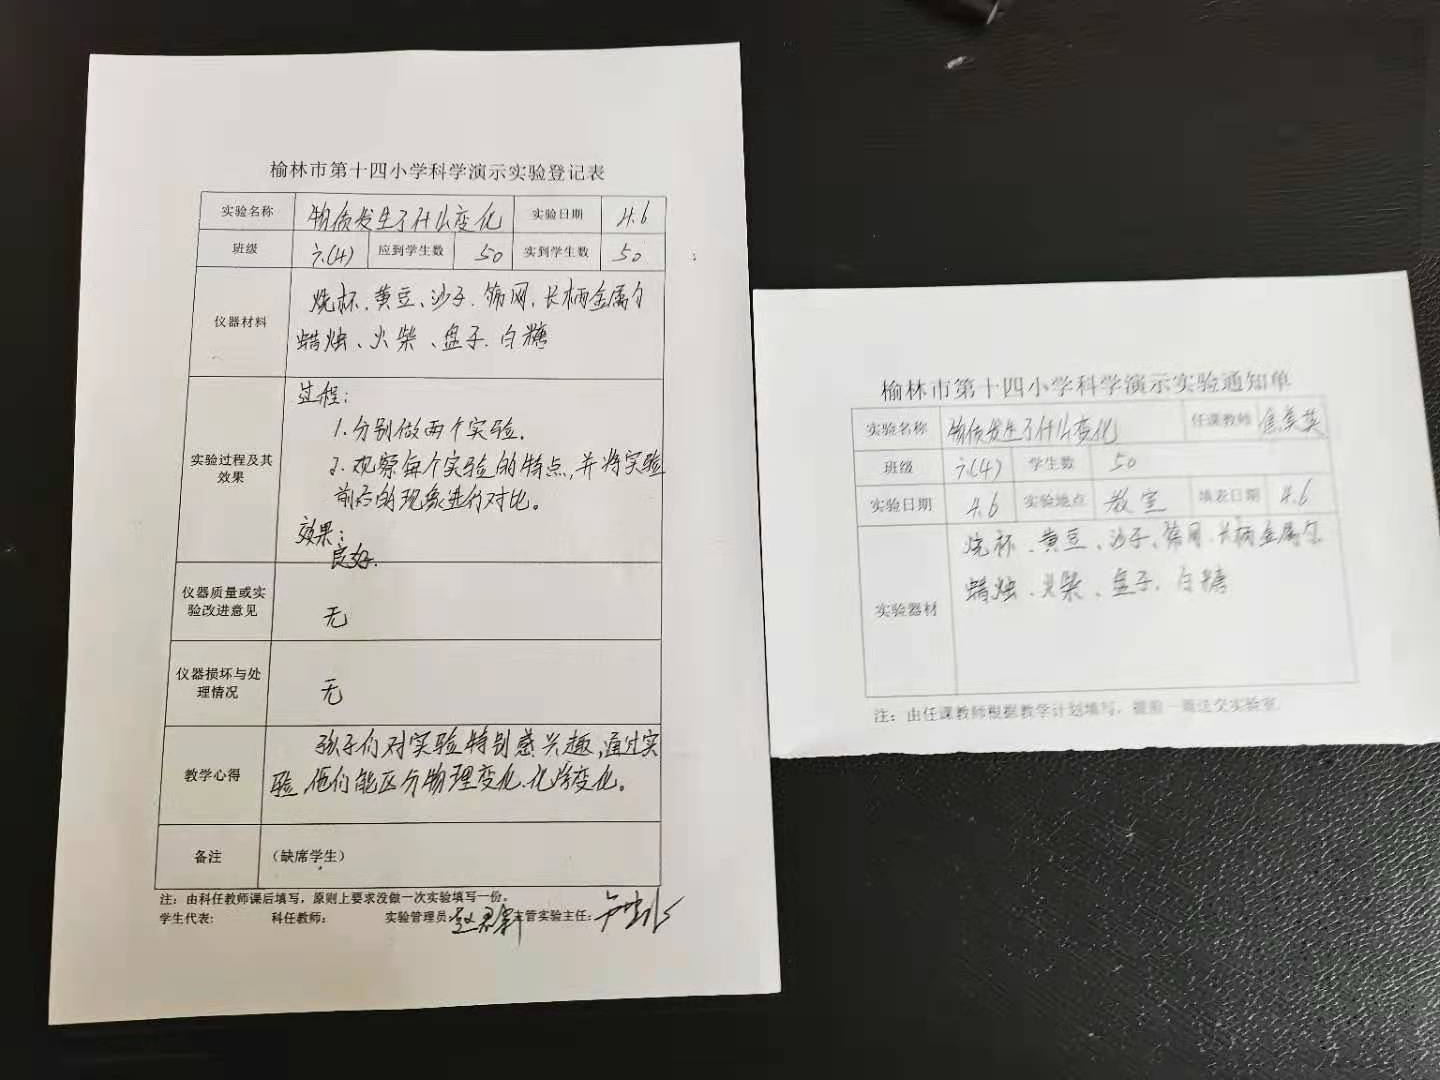 榆林市第十四小学科学演示实验登记表
实验名称 物质发生了什么变化 实验日期 4.6
班级 六(4) 应到学生数 50 实到学生数 50
仪器材料
烧杯、黄豆、沙子、筛网、长柄金属勺
蜡烛、火柴、盘子、白糖
实验过程及其
效果
过程:
1.分别做两个实验.
2.观察每个实验的特点,并将实验
前后的现象进行对比。
效果:
良好.
仪器质量或实
验改进意见
无
仪器损坏与处
理情况
无
教学心得
孩子们对实验特别感兴趣,通过实
验,他们能区分物理变化、化学变化。
备注 (缺席学生)
注:由科任教师课后填写,原则上要求没做一次实验填写一份。
学生代表: 科任教师: 实验管理员: 主管实验主任:
榆林市第十四小学科学演示实验通知单
实验名称 物质发生了什么变化 任课教师
班级 六(4) 学生数 50
实验日期 4.6 实验地点 教室 填表日期 4.6
实验器材
烧杯、黄豆、沙子、筛网、长柄金属勺
蜡烛、火柴、盘子、白糖
注:由任课教师根据教学计划填写,提前一周送交实验室。